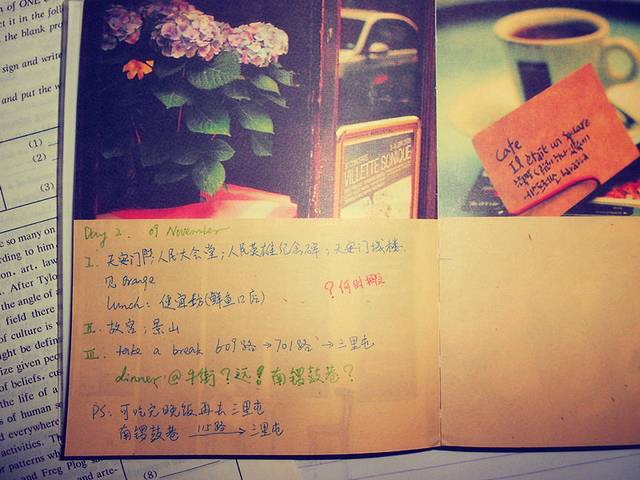 of ONE
ct it in the foll
the blank pro
sign and write
and put the w
(1)
(2)
(3)
so many on
rding to him,
on, art, law
After Tylo
the angle of a
field there
of culture is v
ght be defin
ize given peo
of beliefs, cus
the life of a
s of human se
d everywhere
activities. Th
or patterns wh
and Freg Plog
and arte-
(8)
VILLETTE SONIQUE
Cafe
Il était un Square
Day 2. 09 November
I. 天安门广场;人民大会堂;人民英雄纪念碑;天安门城楼
见 Orange
Lunch: 便宜坊(鲜鱼口店)
?何时
II. 故宫;景山
III. take a break 609路→701路→三里屯
dinner @ 牛街?远!南锣鼓巷?
PS: 可吃完晚饭再去三里屯
南锣鼓巷 115路→三里屯